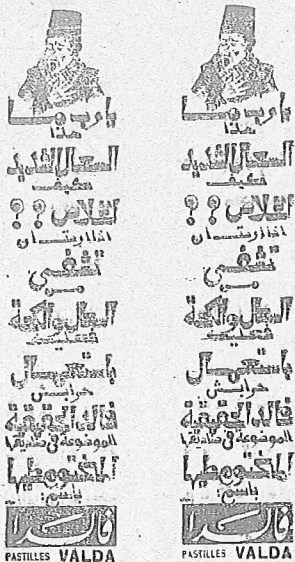 يا رب ما
هذا
السعال الشديد
فكيف
الخلاص ؟؟
اذا اردت ان
تشفى
من
السعال والكحة
فعليك
باستعمال
حرابش
فالدا الحقيقية
الموضوعة في صناديقها
المختوم عليها
باسم:
فالدا
PASTILLES VALDA
يا رب ما
هذا
السعال الشديد
فكيف
الخلاص ؟؟
اذا اردت ان
تشفى
من
السعال والكحة
فعليك
باستعمال
حرابش
فالدا الحقيقية
الموضوعة في صناديقها
المختوم عليها
باسم:
فالدا
PASTILLES VALDA